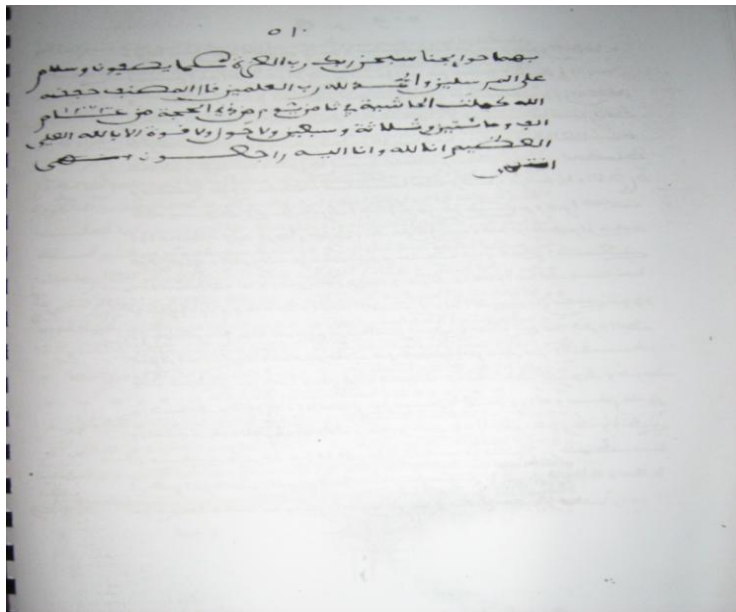 ٥١٠
بهما حوايجنا سبحن ربك رب العزة عما يصفون وسلام
على المرسلين والحمد لله رب العلمين قال المصنف حفظه
الله كملت الحاشية في ثامن يوم من ذي الحجة من عام ١٢٧٣
الف ومائتين وثلاثة وسبعين ولا حول ولا قوة الا بالله العلي
العظيم انا لله وانا اليه راجعون
انتهى